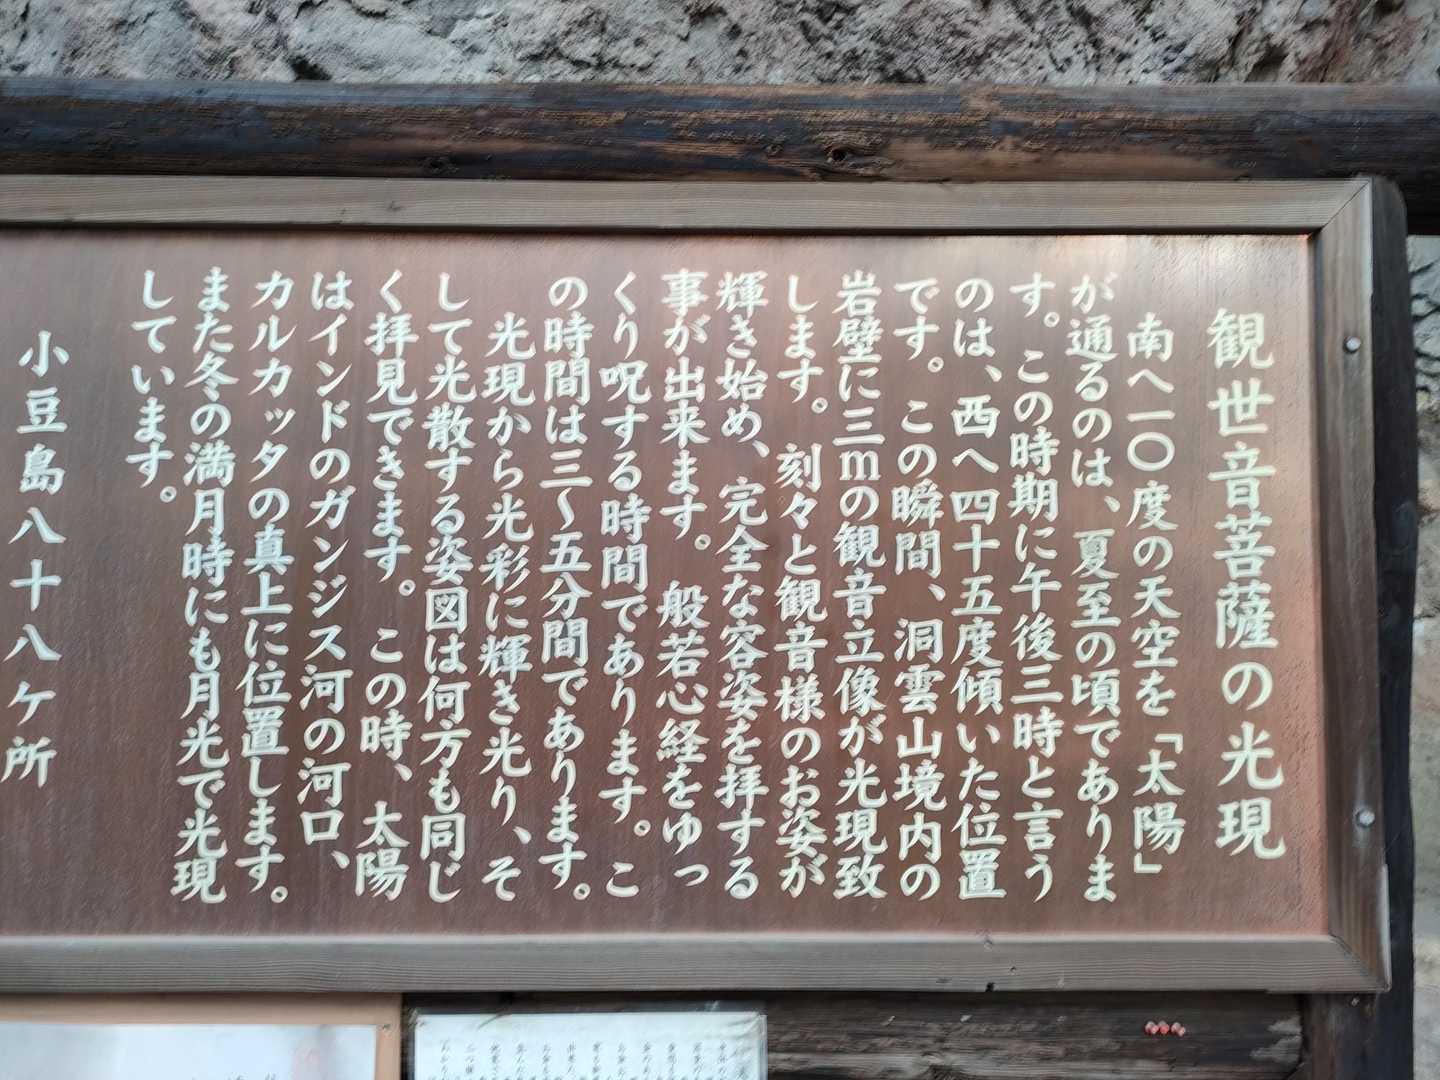 観世音菩薩の光現
南へ一〇度の天空を「太陽」
が通るのは、夏至の頃でありま
す。この時期に午後三時と言う
のは、西へ四十五度傾いた位置
です。この瞬間、洞雲山境内の
岩壁に三mの観音立像が光現致
します。刻々と観音様のお姿が
輝き始め、完全な容姿を拝する
事が出来ます。般若心経をゆっ
くり呪する時間であります。こ
の時間は三〜五分間であります。
光現から光彩に輝き光り、そ
して光散する姿図は何方も同じ
く拝見できます。この時、太陽
はインドのガンジス河の河口、
カルカッタの真上に位置します。
また冬の満月時にも月光で光現
しています。
小豆島八十八ケ所